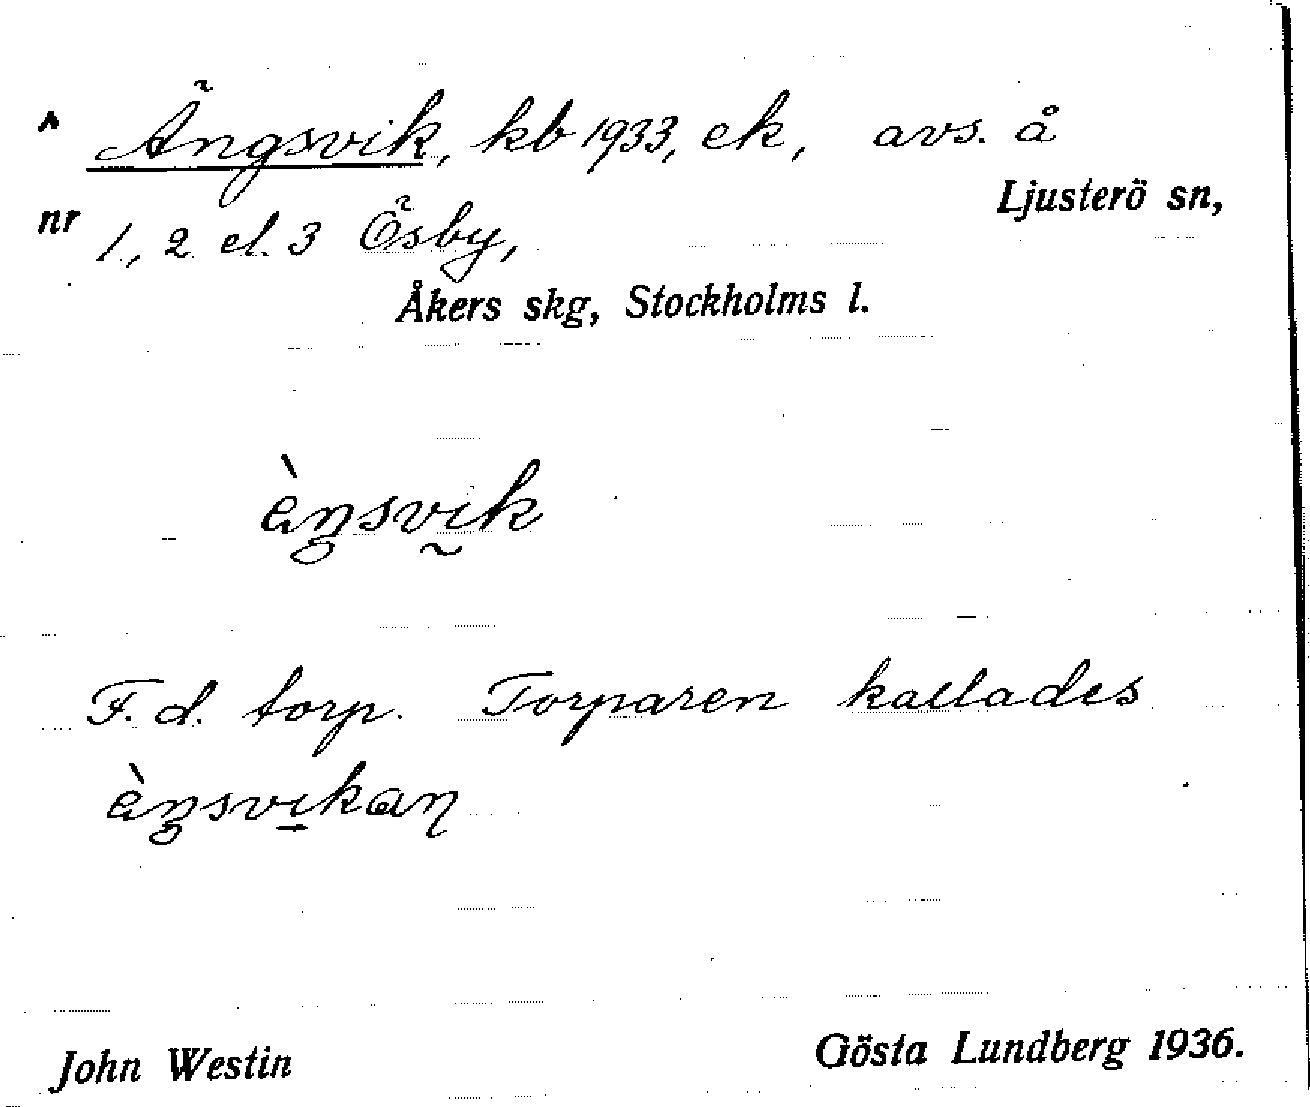 ^ Ängsvik, kb 1933, ek, avs. å
Ljusterö sn,
nr 1, 2 el. 3 Ösby,
Åkers skg, Stockholms l.
àŋsvik
F.d. torp. Torparen kallades
àŋsvikan
John Westin
Gösta Lundberg 1936.